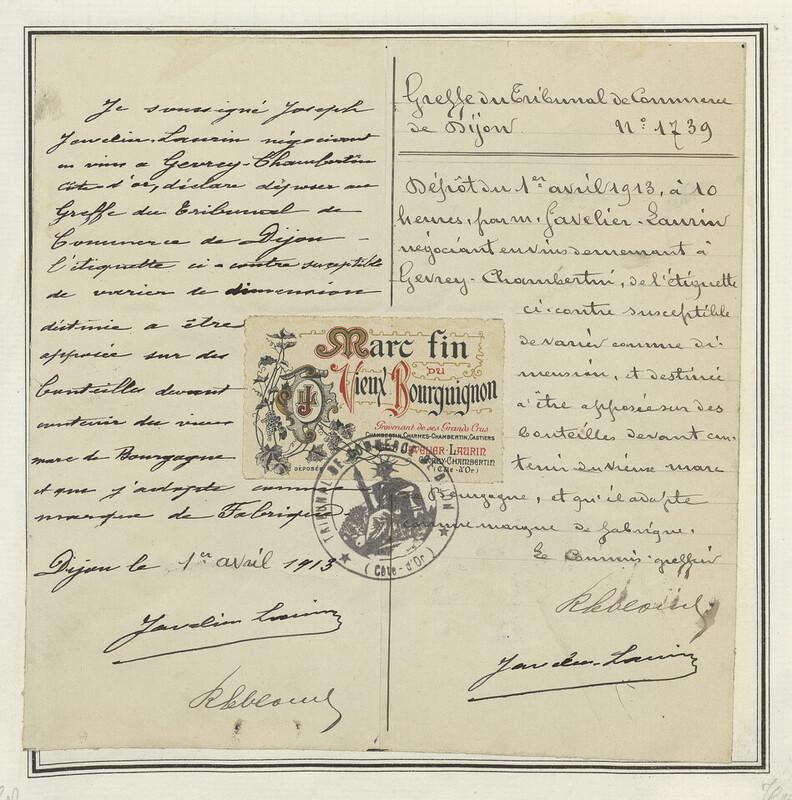 Je soussigné Joseph
Javelier-Laurin négociant
en vins a Gevrey-Chambertin
côte d'or, déclare déposer au
Greffe du Tribunal de
Commerce de Dijon
l'étiquette ci-contre susceptible
de varier de dimension
destinée a être
apposée sur des
bouteilles devant
contenir du vieux
marc de Bourgogne
et que j'adopte comme
marque de Fabrique
Dijon le 1er avril 1913
Javelier Laurin
Greffe du Tribunal de Commerce
de Dijon. N° 1739
Dépôt du 1er avril 1913, à 10
heures, par m. Javelier-Laurin
négociant en vins demeurant à
Gevrey-Chambertin, de l'étiquette
ci-contre susceptible
de varier comme di-
mension, et destinée
à être apposée sur des
bouteilles devant con-
tenir du vieux marc
de Bourgogne, et qu'il adopte
comme marque de fabrique.
Le Commis-greffier
Javelier-Laurin
Marc fin
DU
Vieux Bourguignon
Provenant de ses Grands Crus
CHAMBERTIN, CHARMES-CHAMBERTIN, CASTIERS
JAVELIER-LAURIN
GEVREY-CHAMBERTIN
(Côte-d'Or)
DÉPOSÉE
JL
TRIBUNAL DE COMMERCE DIJON
(Côte-d'Or)